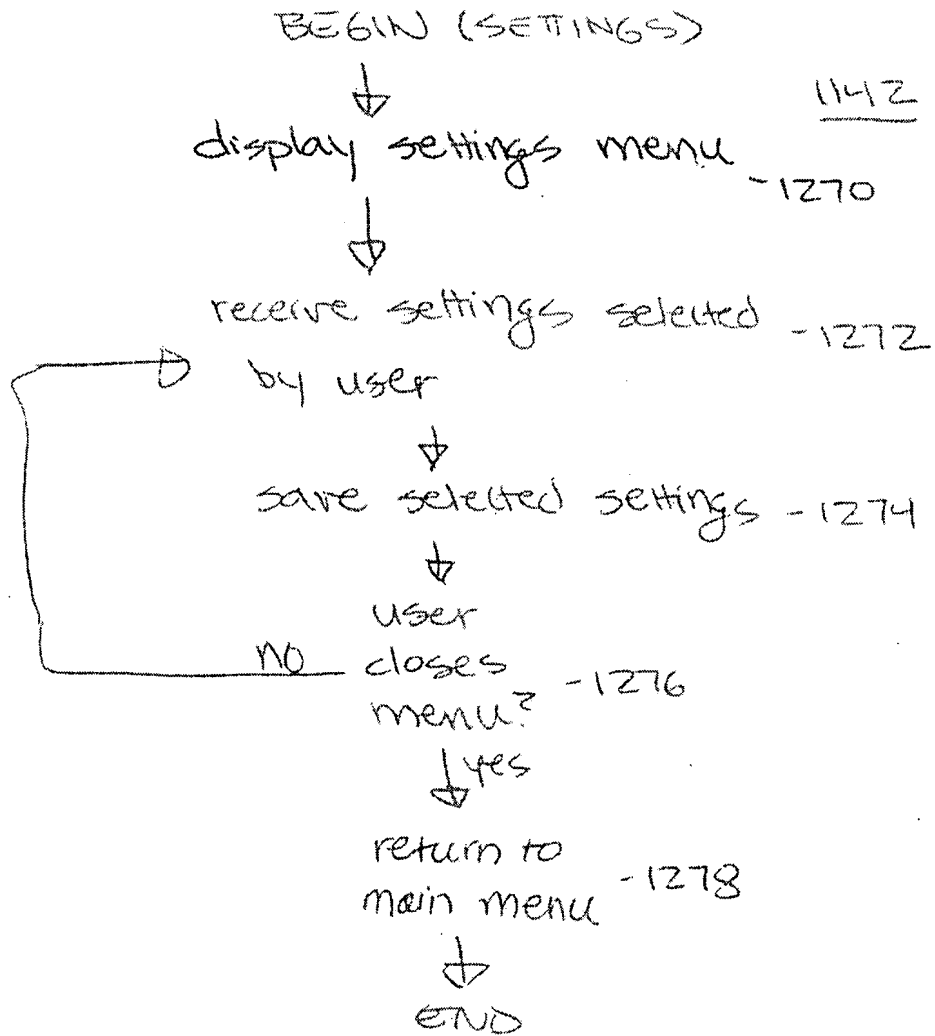 BEGIN (SETTINGS)
1142
display settings menu
-1270
receive settings selected -1272
by user
save selected settings -1274
user
no closes -1276
menu?
yes
return to
main menu -1278
END